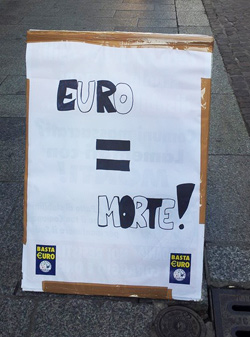 EURO
=
MORTE!
BASTA
€URO
BASTA
€URO